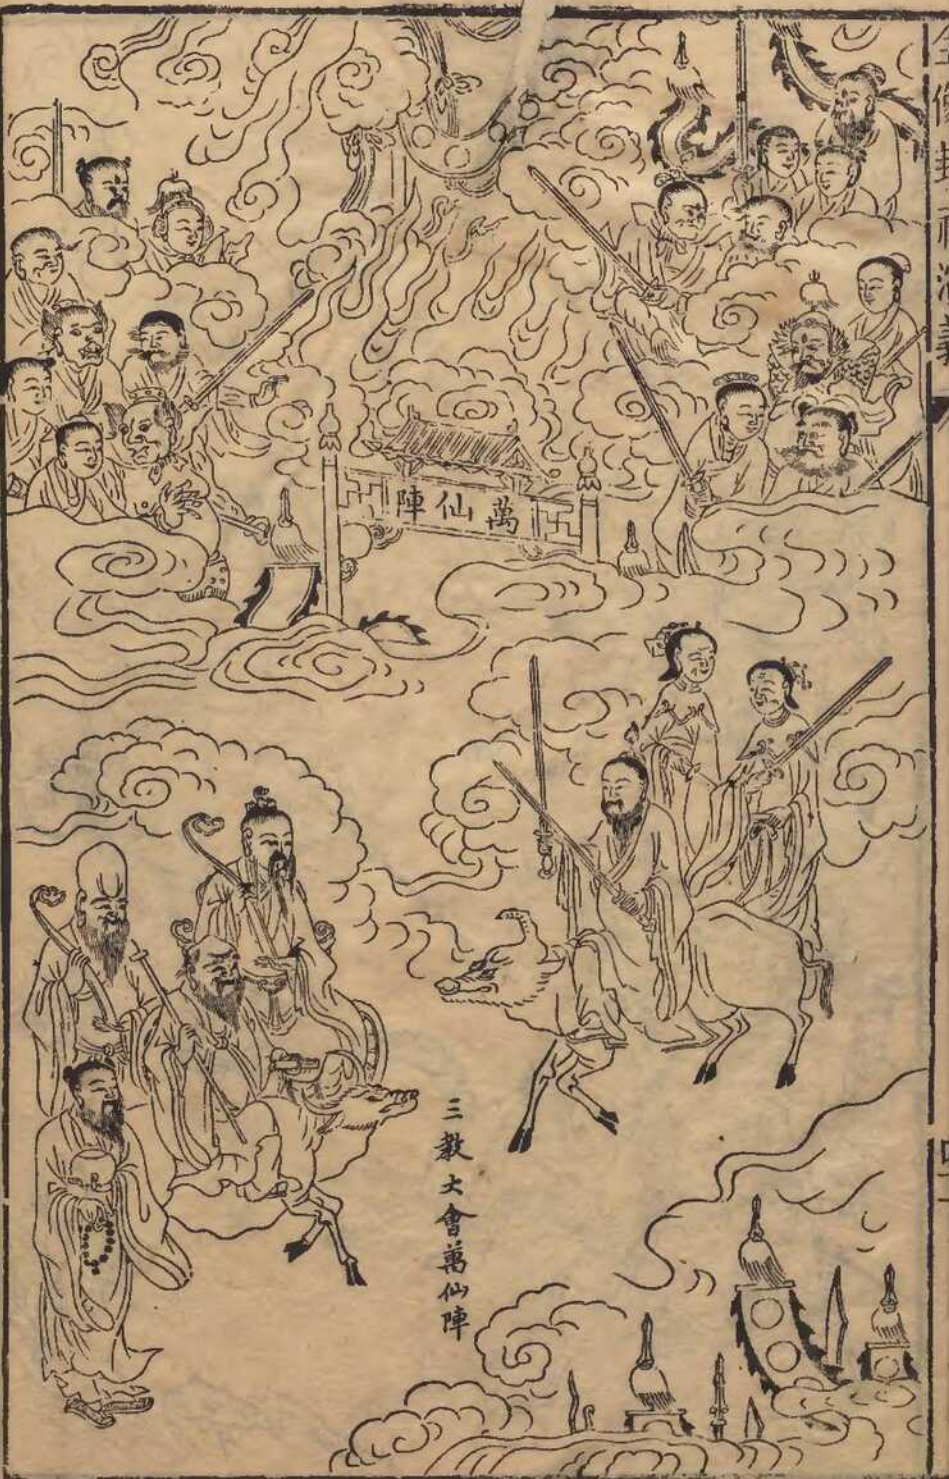 全像封神演義
萬仙陣
三教大會萬仙陣